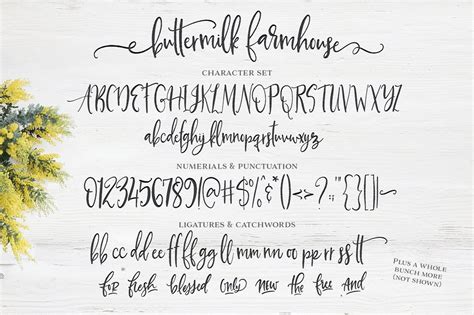 buttermilk farmhouse
CHARACTER SET
ABCDEFGHIJKLMNOPQRSTUVWXYZ
abcdefghijklmnopqrstuvwxyz
NUMERIALS & PUNCTUATION
0123456789!@#$%^&*()<>:;?:"{}[]
LIGATURES & CATCHWORDS
bb cc dd ee ff gg ll mm nn oo pp rr ss tt
for fresh blessed only new the free And
PLUS A WHOLE
BUNCH MORE
(NOT SHOWN)